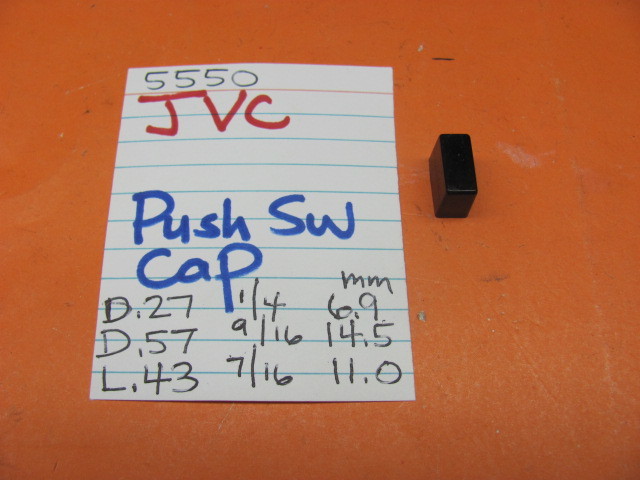 5550
JVC
Push SW
Cap
mm
D.27 1/4 6.9
D.57 9/16 14.5
L.43 7/16 11.0